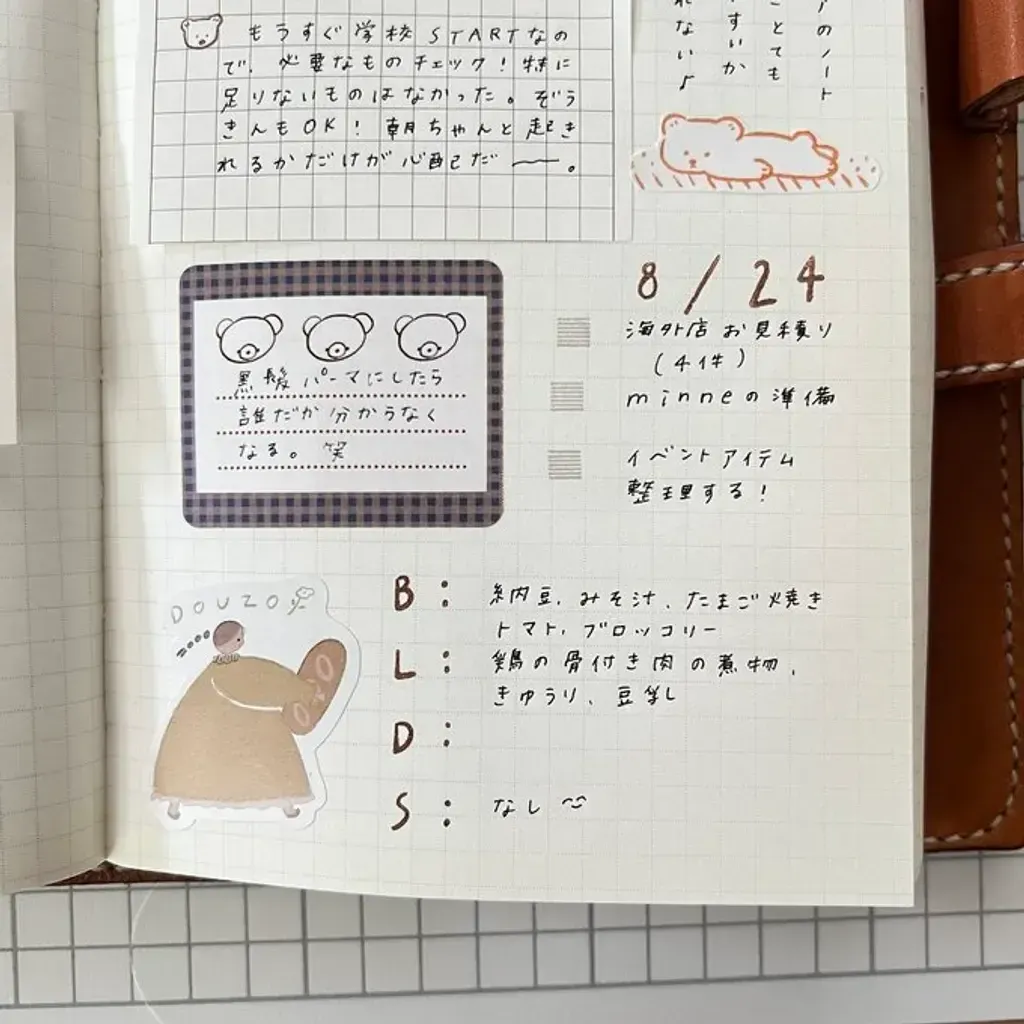 もうすぐ学校STARTなの
で、必要なものチェック！特に
足りないものはなかった。ぞう
きんもOK！朝ちゃんと起き
れるかだけが心配だ——。
アのノート
ことても
すいか
れない♪
8/24
海外店お見積り
(4件)
minneの準備
イベントアイテム
整理する！
黒髪パーマにしたら
誰だか分からなく
なる。笑
DOUZO
B: 納豆、みそ汁、たまご焼き
トマト、ブロッコリー
L: 鶏の骨付き肉の煮物、
きゅうり、豆乳
D:
S: なし